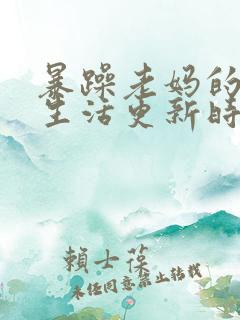 暴躁老妈的
生活更新时
賴士葆
未经同意禁止转载